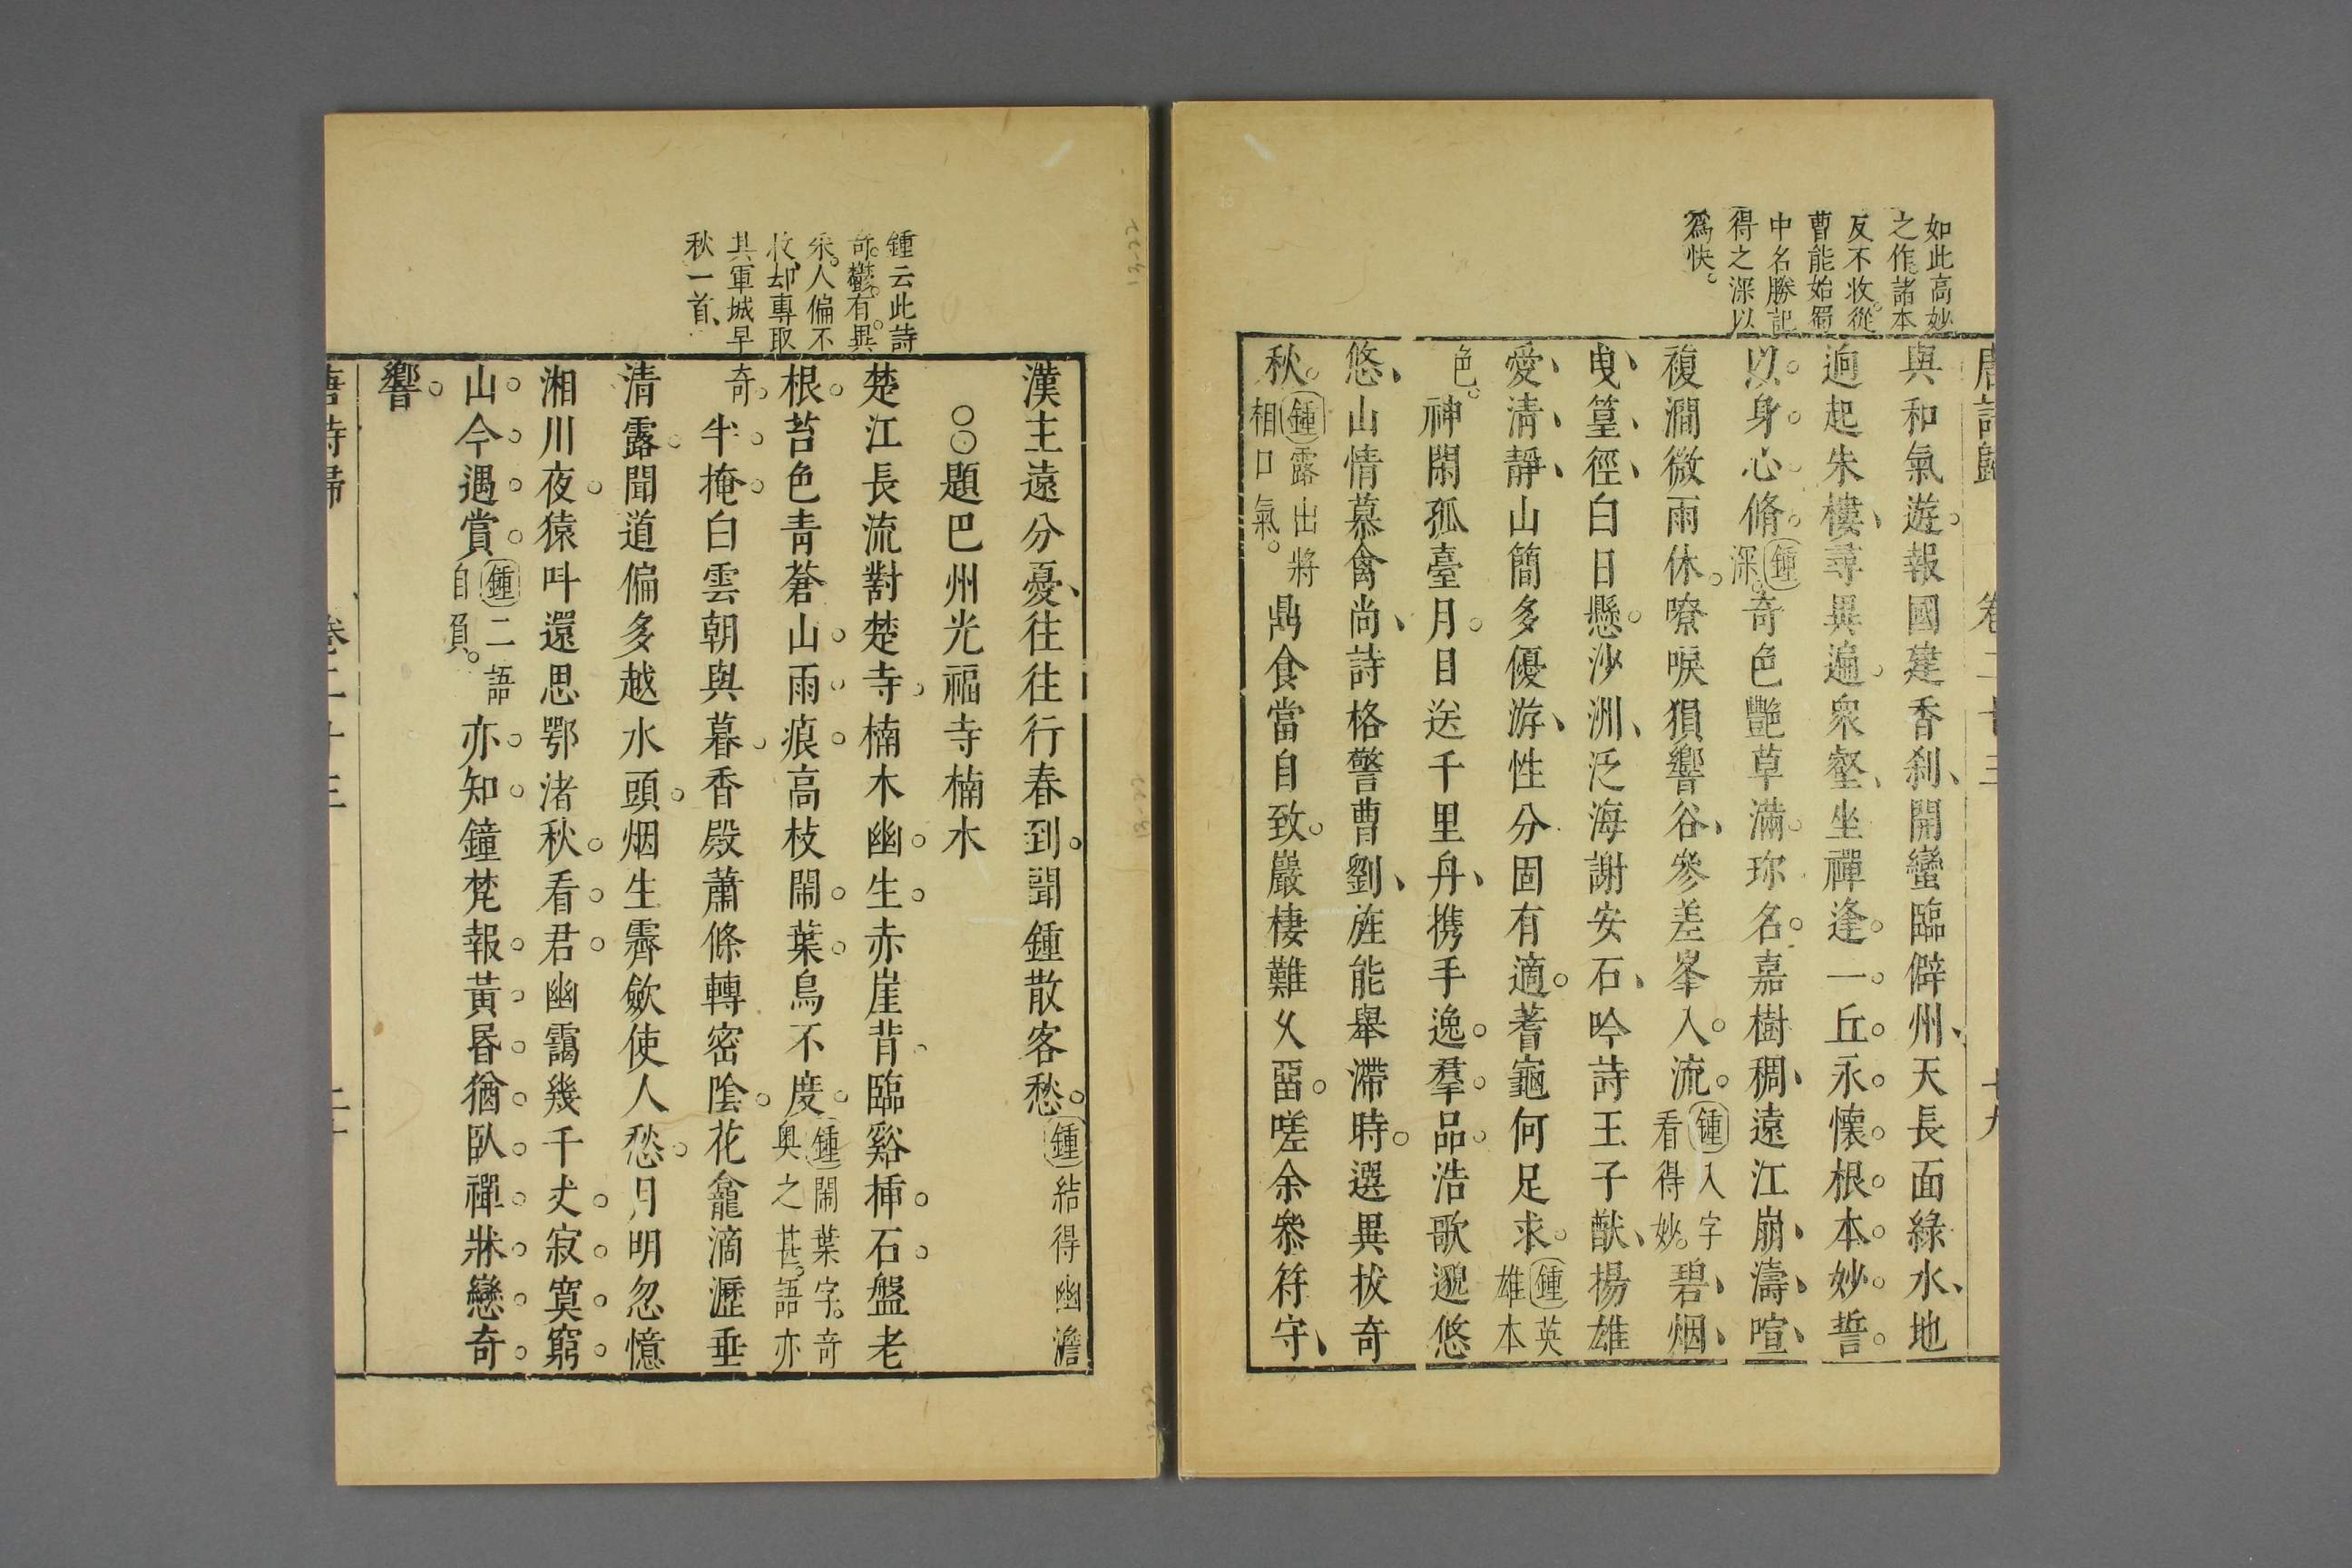 如此高妙
之作。諸本
反不收。從
曹能始蜀
中名勝記
得之深以
爲快。
唐詩歸 卷二十三 十九
與和氣遊。報國建香刹、開蠻臨僻州、天長面綠水、地
逈起朱樓、尋異遍。衆壑、坐禪逢一丘。永懷根本妙。誓
以身心脩。
鍾
深。
奇色豔草滿。珎名。嘉樹稠、遠江崩濤喧、
複澗微雨休。嘹唳猿響谷、參差峯入流。
鍾入字
看得妙。
碧烟、
曳篁徑、白日懸。沙洲、泛海謝安石、吟詩王子猷、揚雄
愛清靜、山簡多優游、性分固有適。蓍龜何足求。
鍾英
雄本
色。
神閑孤臺月。目送千里舟、携手逸羣品。浩歌邈悠
悠、山情慕禽尚、詩格警曹劉、旌能舉滯時。選異拔奇
秋。
鍾露出將
相口氣。
鼎食當自致。巖棲難久畱。嗟余忝符守、
鍾云此詩
奇。鬱。有異
采。人偏不
收、却專取
其軍城早
秋一首、
漢主遠分憂、往往行春到。聞鍾散客愁。
鍾結得幽澹
○○題巴州光福寺楠木
楚江長流對楚寺。楠木幽生。赤崖背、臨谿揷石。盤老
根。苔色青蒼山雨痕。高枝閙葉。鳥不度。
鍾閙葉字。奇
奥之甚。語亦
奇。
半掩。白雲朝與暮。香殿蕭條轉密陰。花龕滴瀝垂
清露。聞道偏多越水頭。烟生霽歛使人愁。月明忽憶
湘川夜。猿呌還思鄂渚秋。看君幽靄幾千丈。寂寞窮
山今遇賞。
鍾二語
自負。
亦知鐘梵報黃昬猶臥禪牀戀奇
響。
唐詩歸 卷二十三 二十